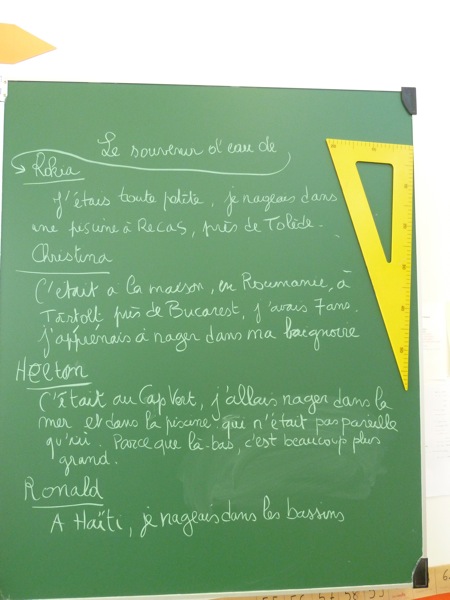 Le souvenir d'eau de
Rokia
J'étais toute petite, je nageais dans
une piscine à Recas, près de Tolède.
Christina
C'était a la maison, en Roumanie, à
près de Bucarest, j'avais 7 ans.
j'apprenais à nager dans ma baignoire
Heeton
C'était au Cap Vert, j'allais nager dans la
mer et dans la piscine qui n'était pas pareille
qu'ici. Parce que là-bas, c'est beaucoup plus
grand.
Ronald
A Haïti, je nageais dans les bassins